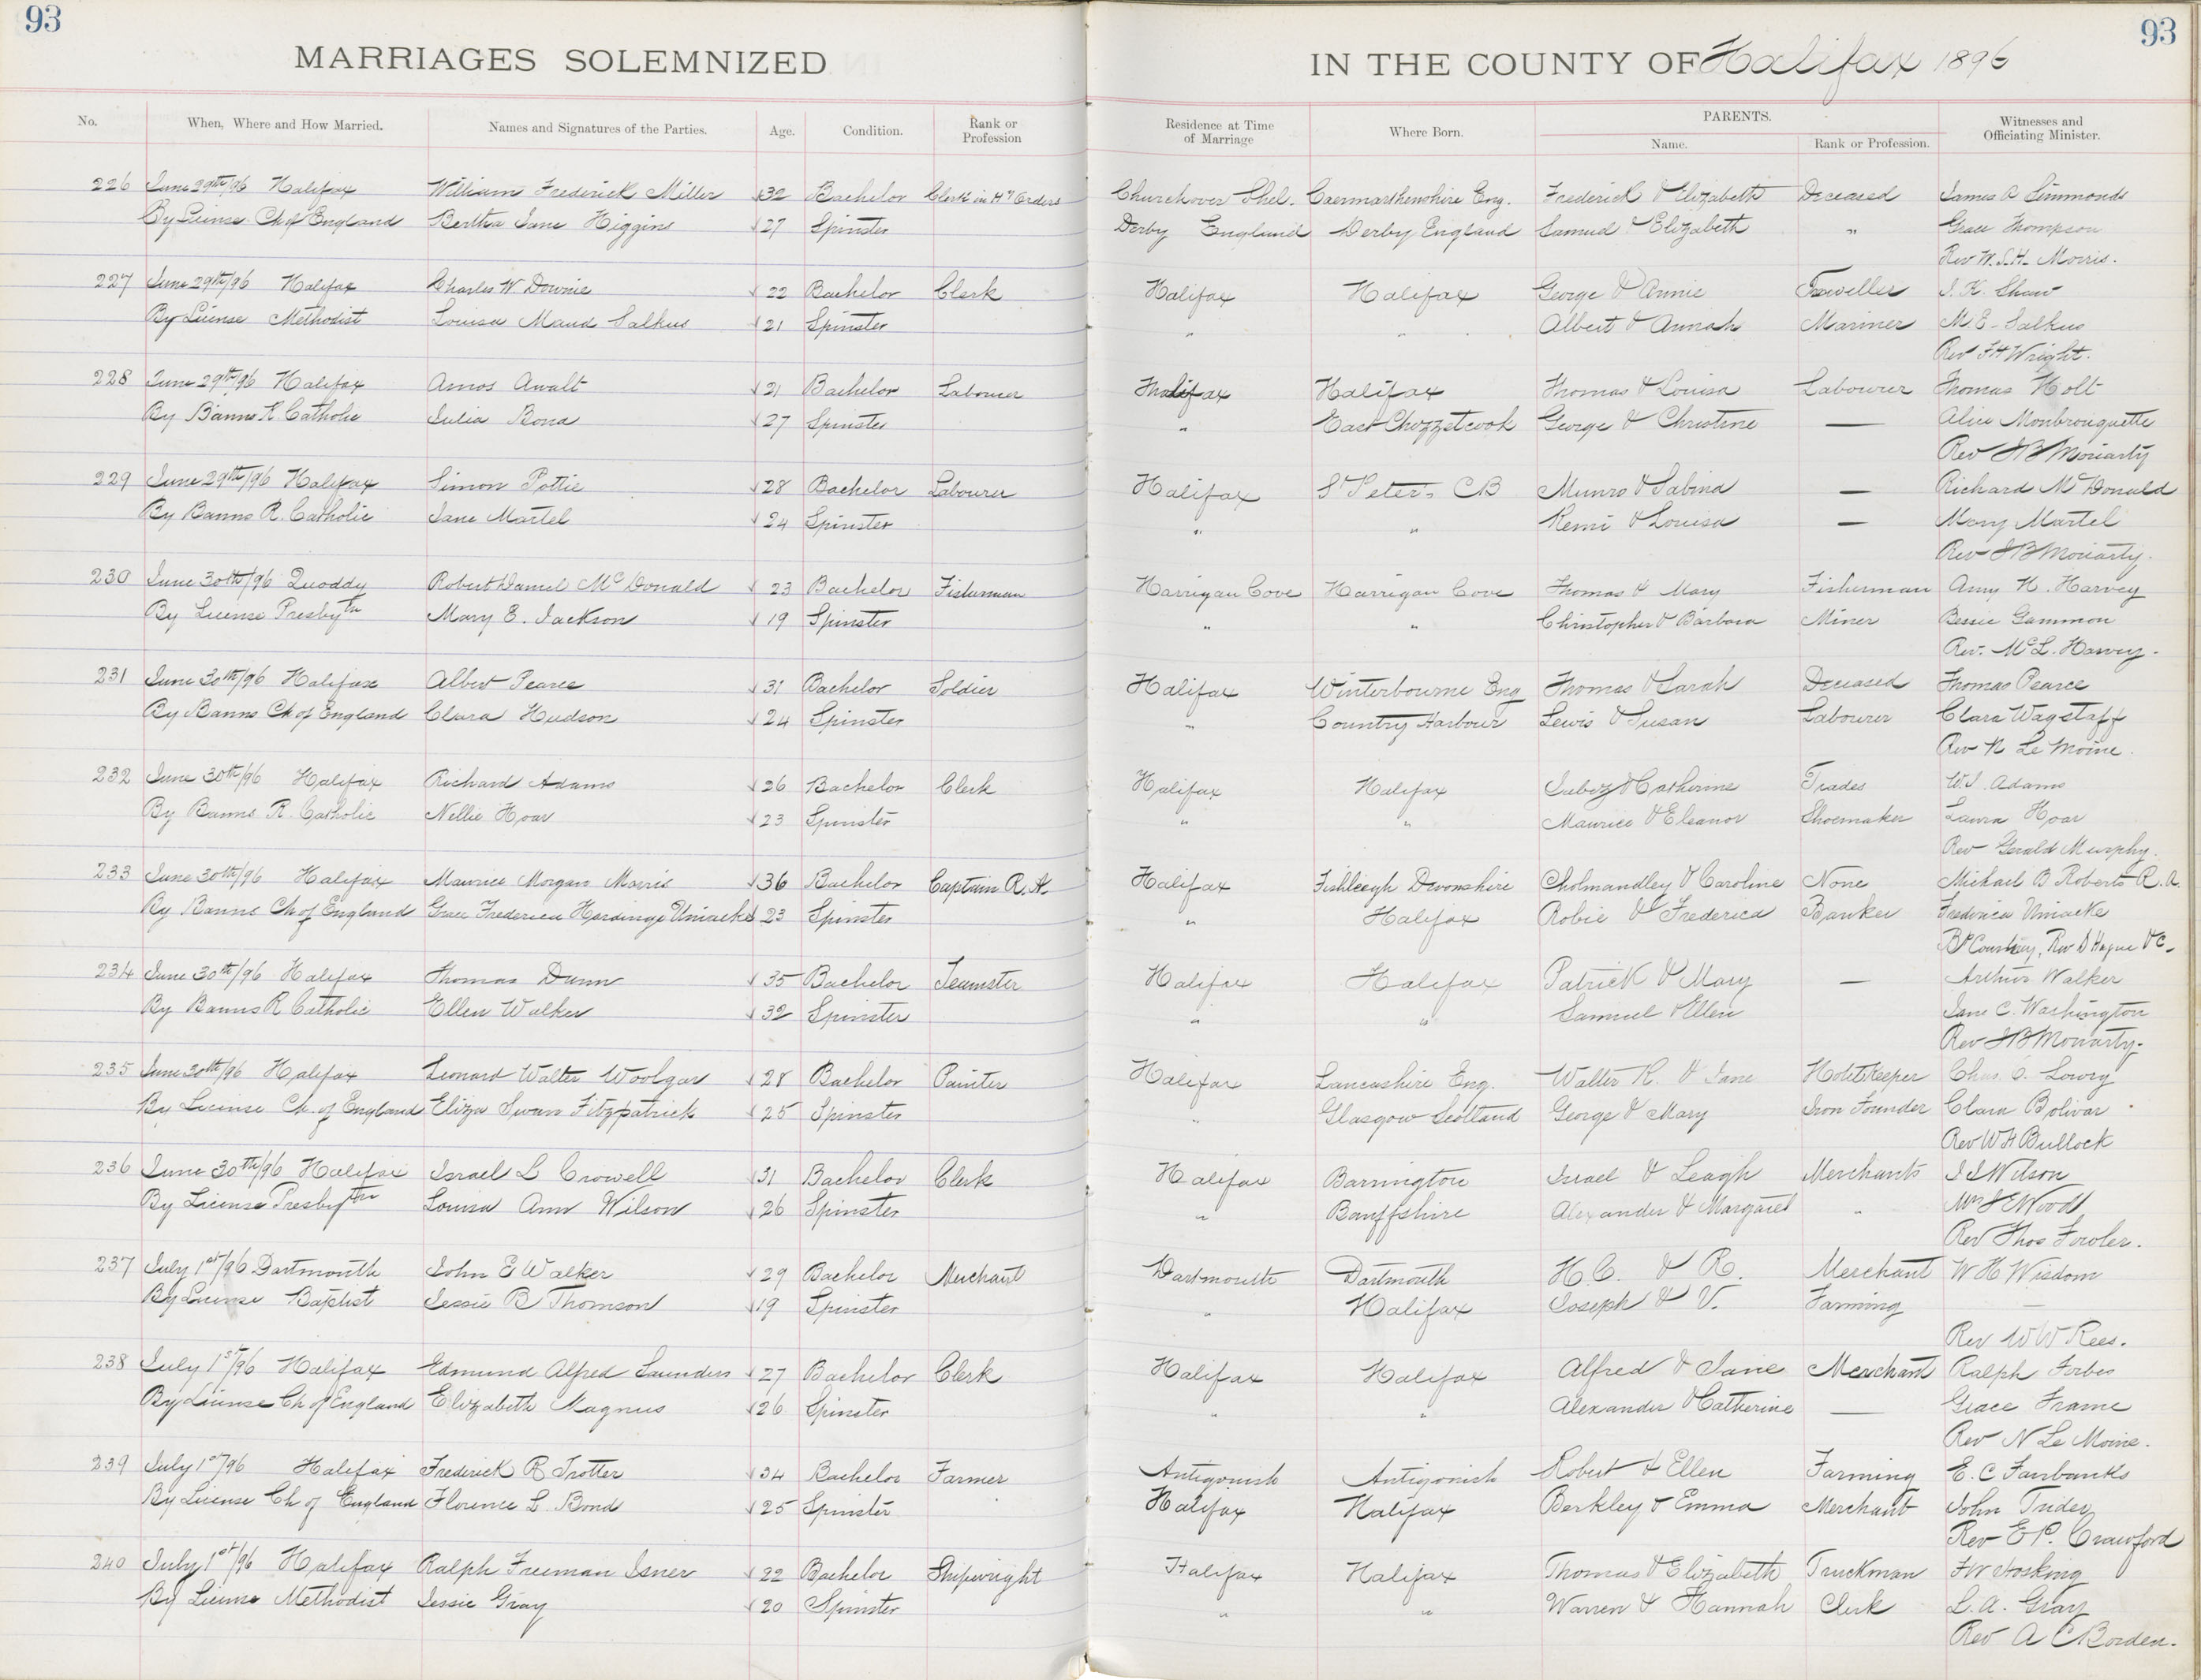 93 93
MARRIAGES SOLEMNIZED IN THE COUNTY OF Halifax 1896
No. When, Where and How Married. Names and Signatures of the Parties. Age. Condition. Rank or Profession Residence at Time of Marriage Where Born. PARENTS. Name. Rank or Profession. Witnesses and Officiating Minister.
226 June 29th/96 Halifax William Frederick Miller 32 Bachelor Clerk in Hy Orders Churchover Shel. Caermarthenshire Eng. Frederick & Elizabeth Deceased James A Simmonds
By License Ch of England Bertha Jane Higgins 27 Spinster Derby England Derby England Samuel & Elizabeth " Grace Thompson
Rev W.S.H. Morris.
227 June 29th/96 Halifax Charles W Downie 22 Bachelor Clerk Halifax Halifax George & Annie Traveller J. K. Shaw
By License Methodist Louisa Maud Salkus 21 Spinster " " Albert & Annah Mariner M. E. Salkus
Rev F H Wright.
228 June 29th/96 Halifax Amos Awalt 21 Bachelor Labourer Halifax Halifax Thomas & Louisa Labourer Thomas Holt
By Banns R Catholic Julia Bona 27 Spinster " East Chezzetcook George & Christine — Alice Monbrouquette
Rev J B Moriarty
229 June 29th/96 Halifax Simon Pottie 28 Bachelor Labourer Halifax St Peter's CB Munro & Sabina — Richard McDonald
By Banns R. Catholic Jane Martel 24 Spinster " " Remi & Louisa — Mary Martel
Rev J B Moriarty.
230 June 30th/96 Quoddy Robert Daniel McDonald 23 Bachelor Fisherman Harrigan Cove Harrigan Cove Thomas & Mary Fisherman Amy H. Harvey
By License Presbytn Mary E. Jackson 19 Spinster " " Christopher & Barbara Miner Bessie Gammon
Rev. McL. Harvey.
231 June 30th/96 Halifax Albert Pearce 31 Bachelor Soldier Halifax Winterbourne Eng Thomas & Sarah Deceased Thomas Pearce
By Banns Ch of England Clara Hudson 24 Spinster " Country Harbour Lewis & Susan Labourer Clara Wagstaff
Rev N Le Moine.
232 June 30th/96 Halifax Richard Adams 26 Bachelor Clerk Halifax Halifax Jabez & Catherine Trades W. J. Adams
By Banns R. Catholic Nellie Hoar 23 Spinster " " Maurice & Eleanor Shoemaker Laura Hoar
Rev Gerald Murphy.
233 June 30th/96 Halifax Maurice Morgan Morris 36 Bachelor Captain R. A. Halifax Fishleigh Devonshire Cholmandley & Caroline None Michael B Roberts R. A.
By Banns Ch of England Grace Frederica Hardinge Uniacke 23 Spinster " Halifax Robie & Frederica Banker Frederica Uniacke
Bp Courtney, Rev D Hague &c.
234 June 30th/96 Halifax Thomas Dunn 35 Bachelor Teamster Halifax Halifax Patrick & Mary — Arthur Walker
By Banns R Catholic Ellen Walker 32 Spinster " " Samuel & Ellen Jane C. Washington
Rev J B Moriarty.
235 June 30th/96 Halifax Leonard Walter Woolgar 28 Bachelor Painter Halifax Lancashire Eng. Walter R. & Jane Hotel Keeper Chas. C. Lowry
By License Ch. of England Eliza Swan Fitzpatrick 25 Spinster " Glasgow Scotland George & Mary Iron Founder Clara Bolivar
Rev W H Bullock
236 June 30th/96 Halifax Israel L Crowell 31 Bachelor Clerk Halifax Barrington Israel & Leagh Merchants J J Wilson
By License Presbytn Louisa Ann Wilson 26 Spinster " Banffshire Alexander & Margaret " Mrs J E Wood
Rev Thos Fowler.
237 July 1st/96 Dartmouth John E Walker 29 Bachelor Merchant Dartmouth Dartmouth H. C. & R. Merchant W H Wisdom
By License Baptist Jessie B Thomson 19 Spinster " Halifax Joseph & V. Farming —
Rev W W Rees.
238 July 1st/96 Halifax Edmund Alfred Saunders 27 Bachelor Clerk Halifax Halifax Alfred & Jane Merchant Ralph Forbes
By License Ch of England Elizabeth Magnus 26 Spinster " " Alexander & Catherine — Grace Frame
Rev N Le Moine.
239 July 1st/96 Halifax Frederick R Trotter 34 Bachelor Farmer Antigonish Antigonish Robert & Ellen Farming E. C Fairbanks
By License Ch of England Florence L. Bond 25 Spinster Halifax Halifax Berkley & Emma Merchant John Trider
Rev E P. Crawford
240 July 1st/96 Halifax Ralph Freeman Isner 22 Bachelor Shipwright Halifax Halifax Thomas & Elizabeth Truckman F W Hosking
By License Methodist Jessie Gray 20 Spinster " " Warren & Hannah Clerk L. A. Gray
Rev A C Borden.